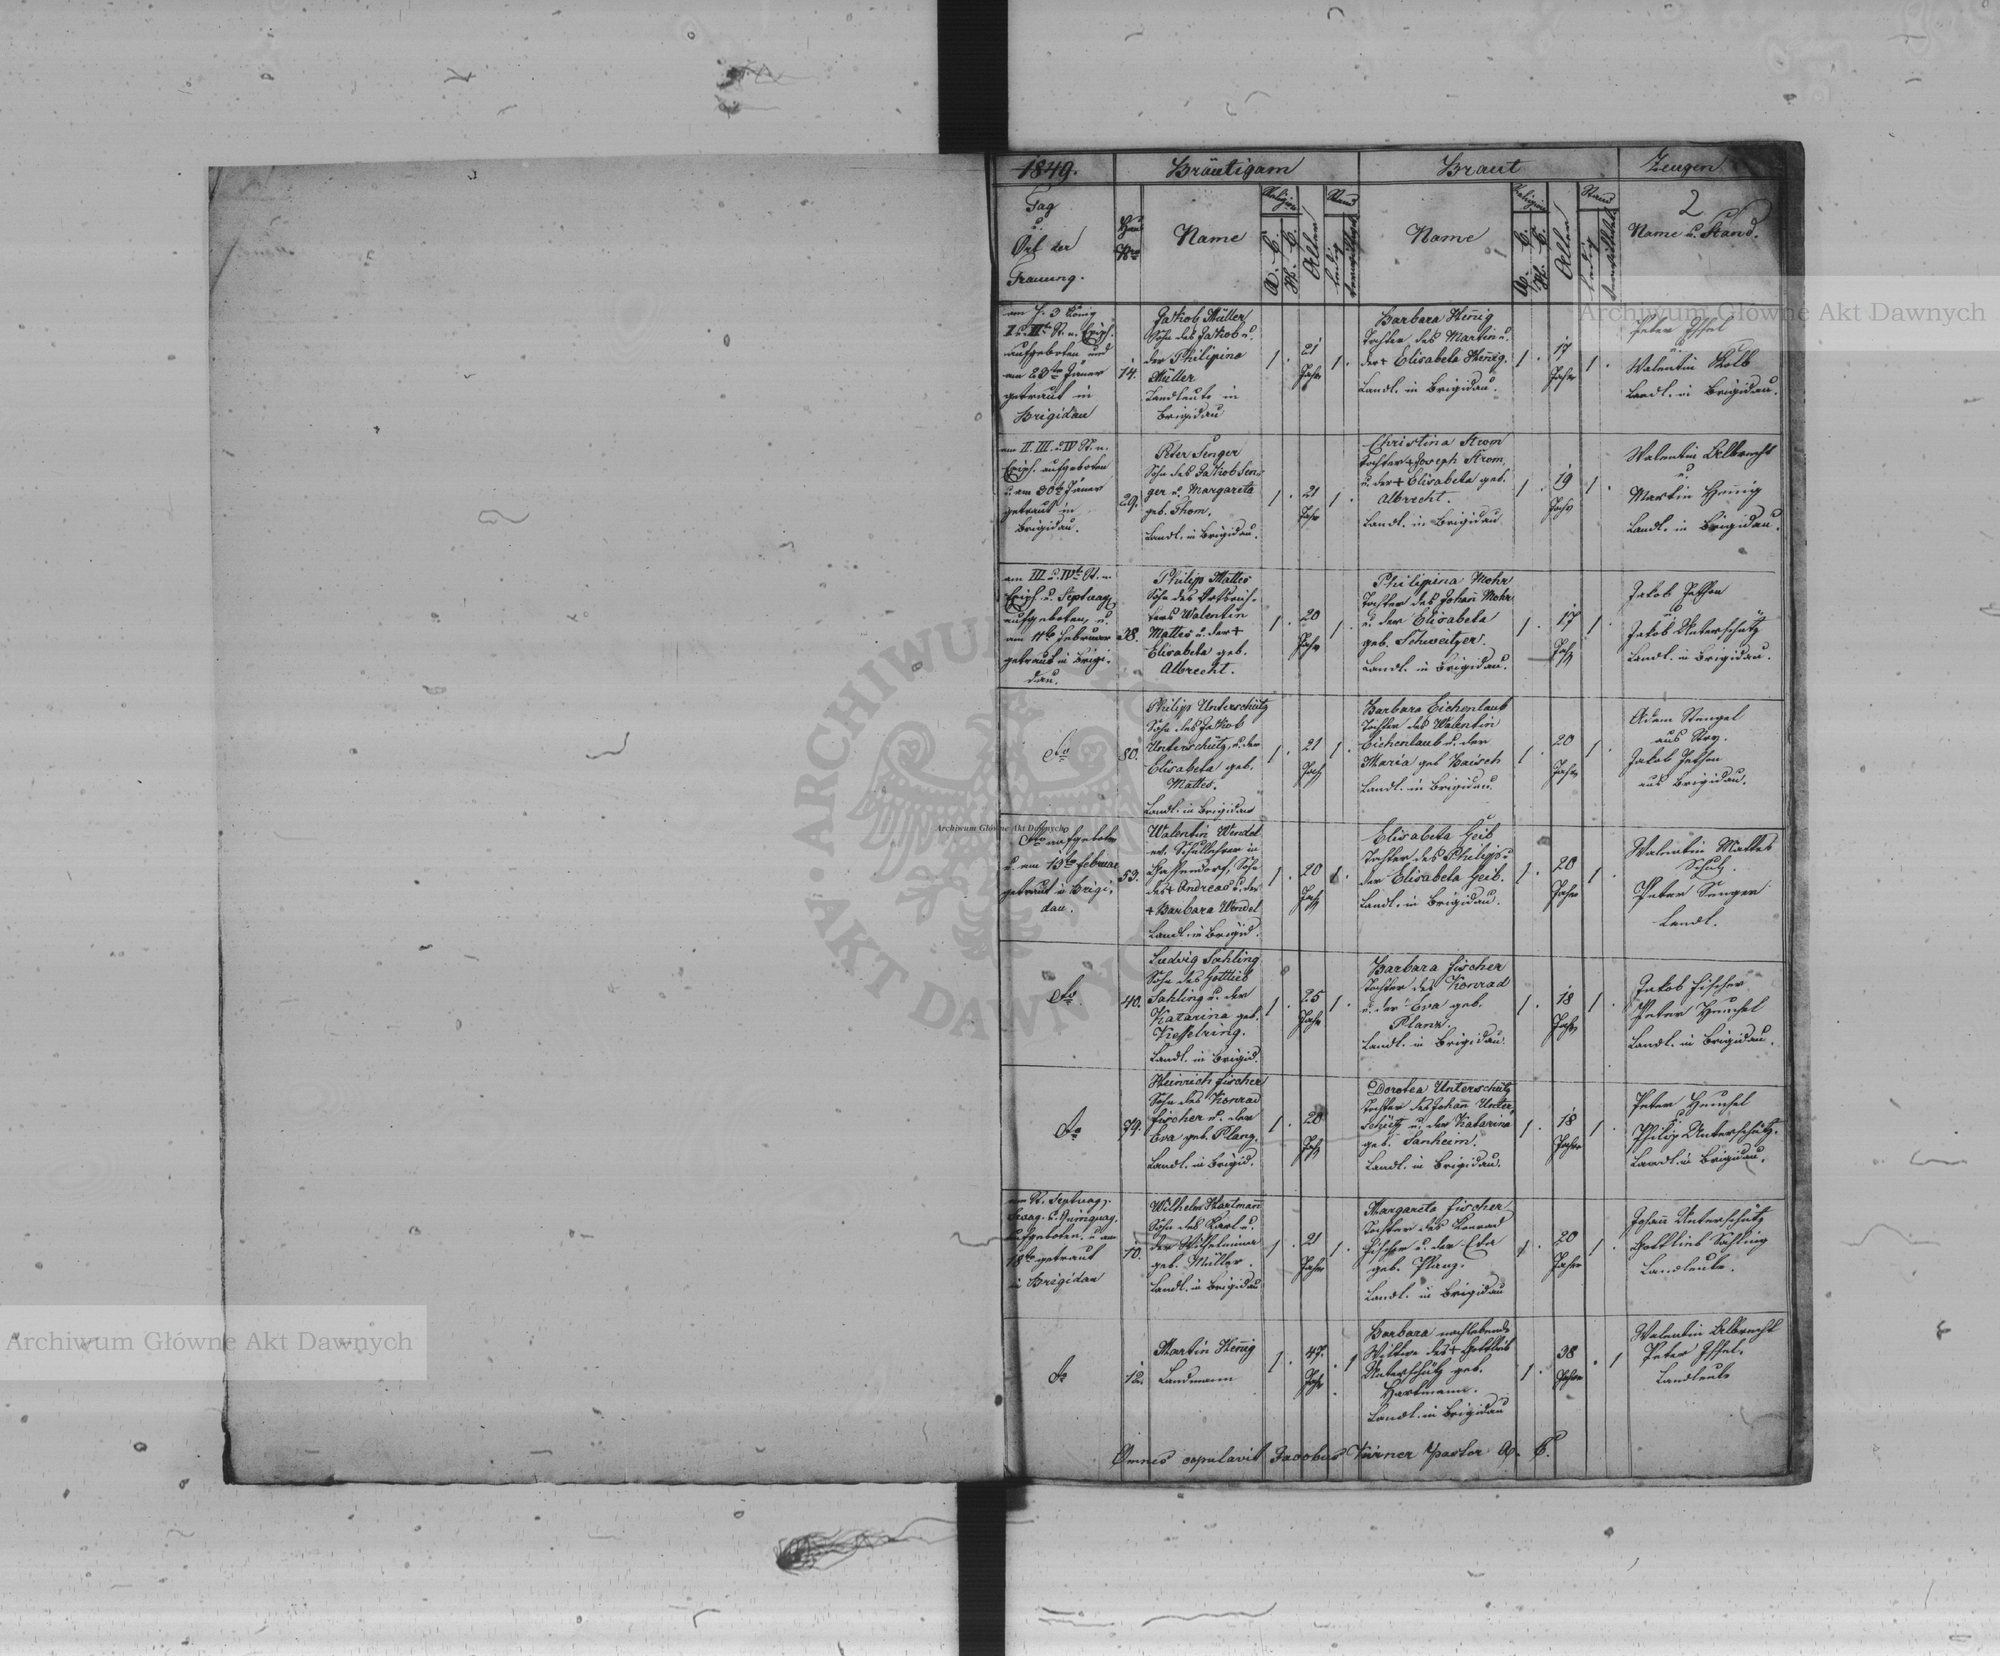 1849.
Bräutigam
Braut
Zeugen
2
Tag
u.
Ort der
Trauung.
Haus
Nro
Name
Religion
A. C.
H. C.
Alter
Stand
ledig
verwittwet
Name
Religion
A. C.
H. C.
Alter
Stand
ledig
verwittwet
Name u. Stand.
am h. 3 König
I u. II St. n. Epiph.
aufgeboten und
am 23ten Jäner
getraut in
Brigidau
14.
Jakob Müller
Sohn des Jakob u.
der Philipina
Müller
Landleute in
Brigidau
1.
21
Jahr
1.
Barbara Hen̄ig
Tochter des Martin u.
der + Elisabeta Hen̄ig.
Landl. in Brigidau.
1.
17
Jahr
1.
Peter Issel
u.
Valentin Kolb
Landl. in Brigidau.
am II. III. u. IV St. n.
Epiph. aufgeboten
u. am 30ten Jäner
getraut in
Brigidau.
29.
Peter Senger
Sohn des Jakob Sen-
ger u. Margareta
geb. Thom.
Landl. in Brigidau.
1.
21
Jahr
1.
Christina Strom
Tochter + Joseph Strom
u. der + Elisabeta geb.
Albrecht.
Landl. in Brigidau
1.
19
Jahr
1.
Valentin Albrecht
u.
Martin Hen̄ig
Landl. in Brigidau.
am III u. IVten St. n.
Epiph. u. Septuag.
aufgeboten, u.
am 11ten Februar
getraut in Brigi-
dau.
28.
Philip Mattes
Sohn des Ortsrich-
ters Valentin
Mattes u. der +
Elisabeta geb.
Albrecht.
1.
20
Jahr
1.
Philipina Mohr
Tochter des Johan̄ Mohr
u. der Elisabeta
geb. Schweitzer.
Landl. in Brigidau.
1.
17
Jahr
1.
Jakob
u.
Jakob Unterschütz
Landl. in Brigidau.
dto
80.
Philip Unterschütz
Sohn des Jakob
Unterschütz, u. der
Elisabeta geb.
Mattes.
Landl. in Brigidau
1.
21
Jahr
1.
Barbara Eichenlaub
Tochter des Valentin
Eichenlaub u. der
Maria geb Bausch
Landl. in Brigidau.
1.
20
Jahr
1.
Adam Stengel
aus Stry.
Jakob
aus Brigidau.
dto aufgeboten
u. am 13ten Februar
getraut in Brigi-
dau.
53.
Valentin Wendel
ev. Schullehrer in
Gassendorf, Sohn
des + Andreas u. der
+ Barbara Wendel
Landl. in Brigid.
1.
20
Jahr
1.
Elisabeta Geib
Tochter des Philipp u.
der Elisabeta Geib.
Landl. in Brigidau.
1.
20
Jahr
1.
Valentin Mattes
Schulz.
Peter Senger
Landl.
dto
40.
Ludvig Sahling
Sohn des Gottlieb
Sahling u. der
Katarina geb.
Kesselring.
Landl. in Brigid.
1.
25
Jahr
1.
Barbara Fischer
Tochter des Konrad
u. der Eva geb.
Planz
Landl. in Brigidau.
1.
18
Jahr
1.
Jakob Fischer
Peter Heuchel
Landl. in Brigidau.
dto
74.
Heinrich Fischer
Sohn des Konrad
Fischer u. der
Eva geb. Planz,
Landl. in Brigid.
1.
20
Jahr
Dorotea Unterschütz
Tochter des Johan̄ Unter-
schütz u. der Katarina
geb. Sanheim.
Landl. in Brigidau.
1.
18
Jahr
1.
Peter Heuchel
Philip Unterschütz.
Landl. in Brigidau.
am St. Septuag.
Sexag. u. Quinquag.
aufgeboten, u. am
18ten getraut
in Brigidau
10.
Wilhelm Hartman̄
Sohn des Karl u.
der Wilhelmina
geb. Müller.
Landl. in Brigidau
1.
21
Jahr
1.
Margareta Fischer
Tochter des Konrad
Fischer u. der Eva
geb. Planz.
Landl. in Brigidau
1.
20
Jahr
1.
Johan̄ Unterschütz
Gottlieb Sahling
Landleute.
dto
12.
Martin Hen̄ig
Landmann
1.
47.
Jahr
1
Barbara nachlebende
Wittwe des + Gottlieb
Unterschütz geb.
Hartmann.
Landl. in Brigidau
1.
38
Jahr
1
Valentin Albrecht
Peter Issel.
Landleute
Omnes copulavit Jacobus Körner Pastor A. C.
Archiwum Główne Akt Dawnych
Archiwum Główne Akt Dawnych
Archiwum Główne Akt Dawnych